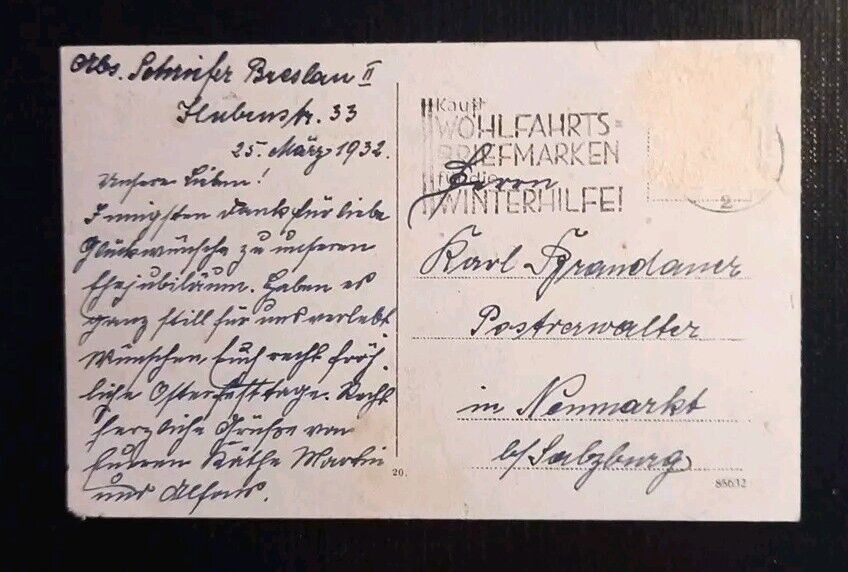 Abs. Schriefer Breslau II
Hubenstr. 33
25. März 1932.
Unsere Lieben!
Innigsten Dank für liebe
Glückwünsche zu unseren
Ehejubiläum. Haben es
ganz still für uns verlebt
Wünschen Euch recht fröh-
liche Osterfesttage. Recht
herzliche Grüße von
Euren Käthe Martin
und Alfons.
Kauft
WOHLFAHRTS-
BRIEFMARKEN
für die
WINTERHILFE!
2
Herrn
Karl Fgrandauer
Postverwalter
in Neumarkt
b/Salzburg
20.
88612